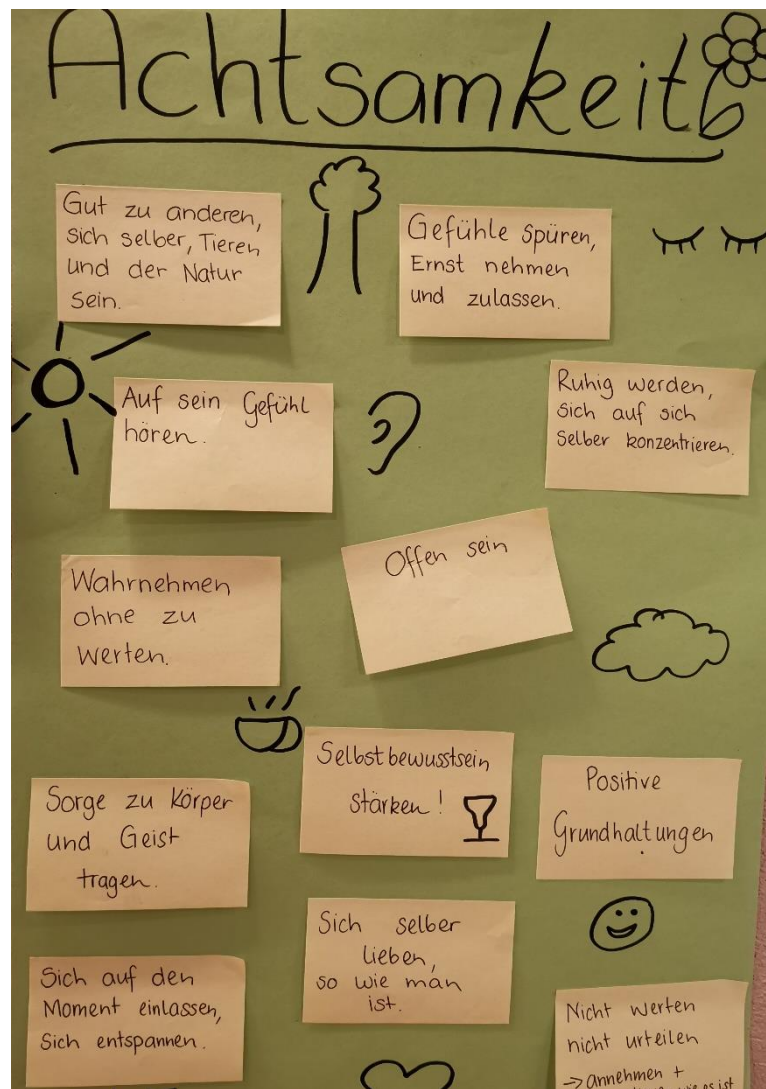 Achtsamkeit
Gut zu anderen,
sich selber, Tieren
und der Natur
sein.
Gefühle spüren,
Ernst nehmen
und zulassen.
Auf sein Gefühl
hören.
Ruhig werden,
sich auf sich
selber konzentrieren.
Wahrnehmen
ohne zu
werten.
Offen sein
Selbstbewusstsein
stärken!
Positive
Grundhaltungen
Sorge zu Körper
und Geist
tragen.
Sich selber
lieben,
so wie man
ist.
Sich auf den
Moment einlassen,
Sich entspannen.
Nicht werten
nicht urteilen
-> annehmen +
wie es ist